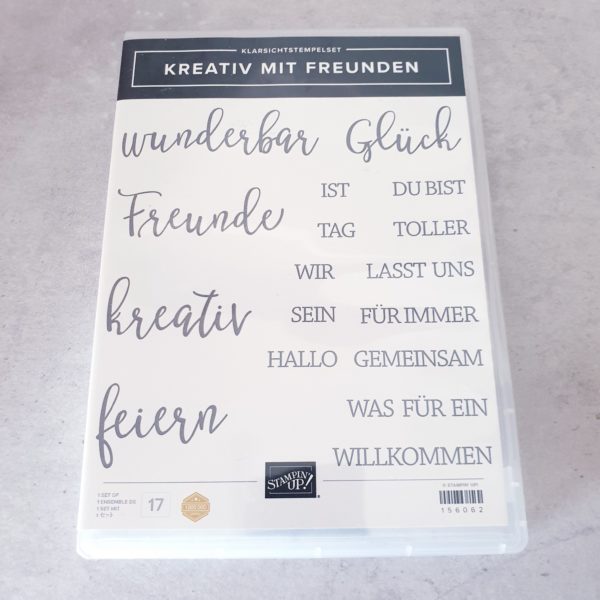 KLARSICHTSTEMPELSET
KREATIV MIT FREUNDEN
wunderbar Glück
IST DU BIST
Freunde
TAG TOLLER
WIR LASST UNS
kreativ
SEIN FÜR IMMER
HALLO GEMEINSAM
feiern
WAS FÜR EIN
WILLKOMMEN
STAMPIN' UP!®
© STAMPIN' UP!
1 SET OF
1 ENSEMBLE DE
1 SET MIT
1 セット
17
156062